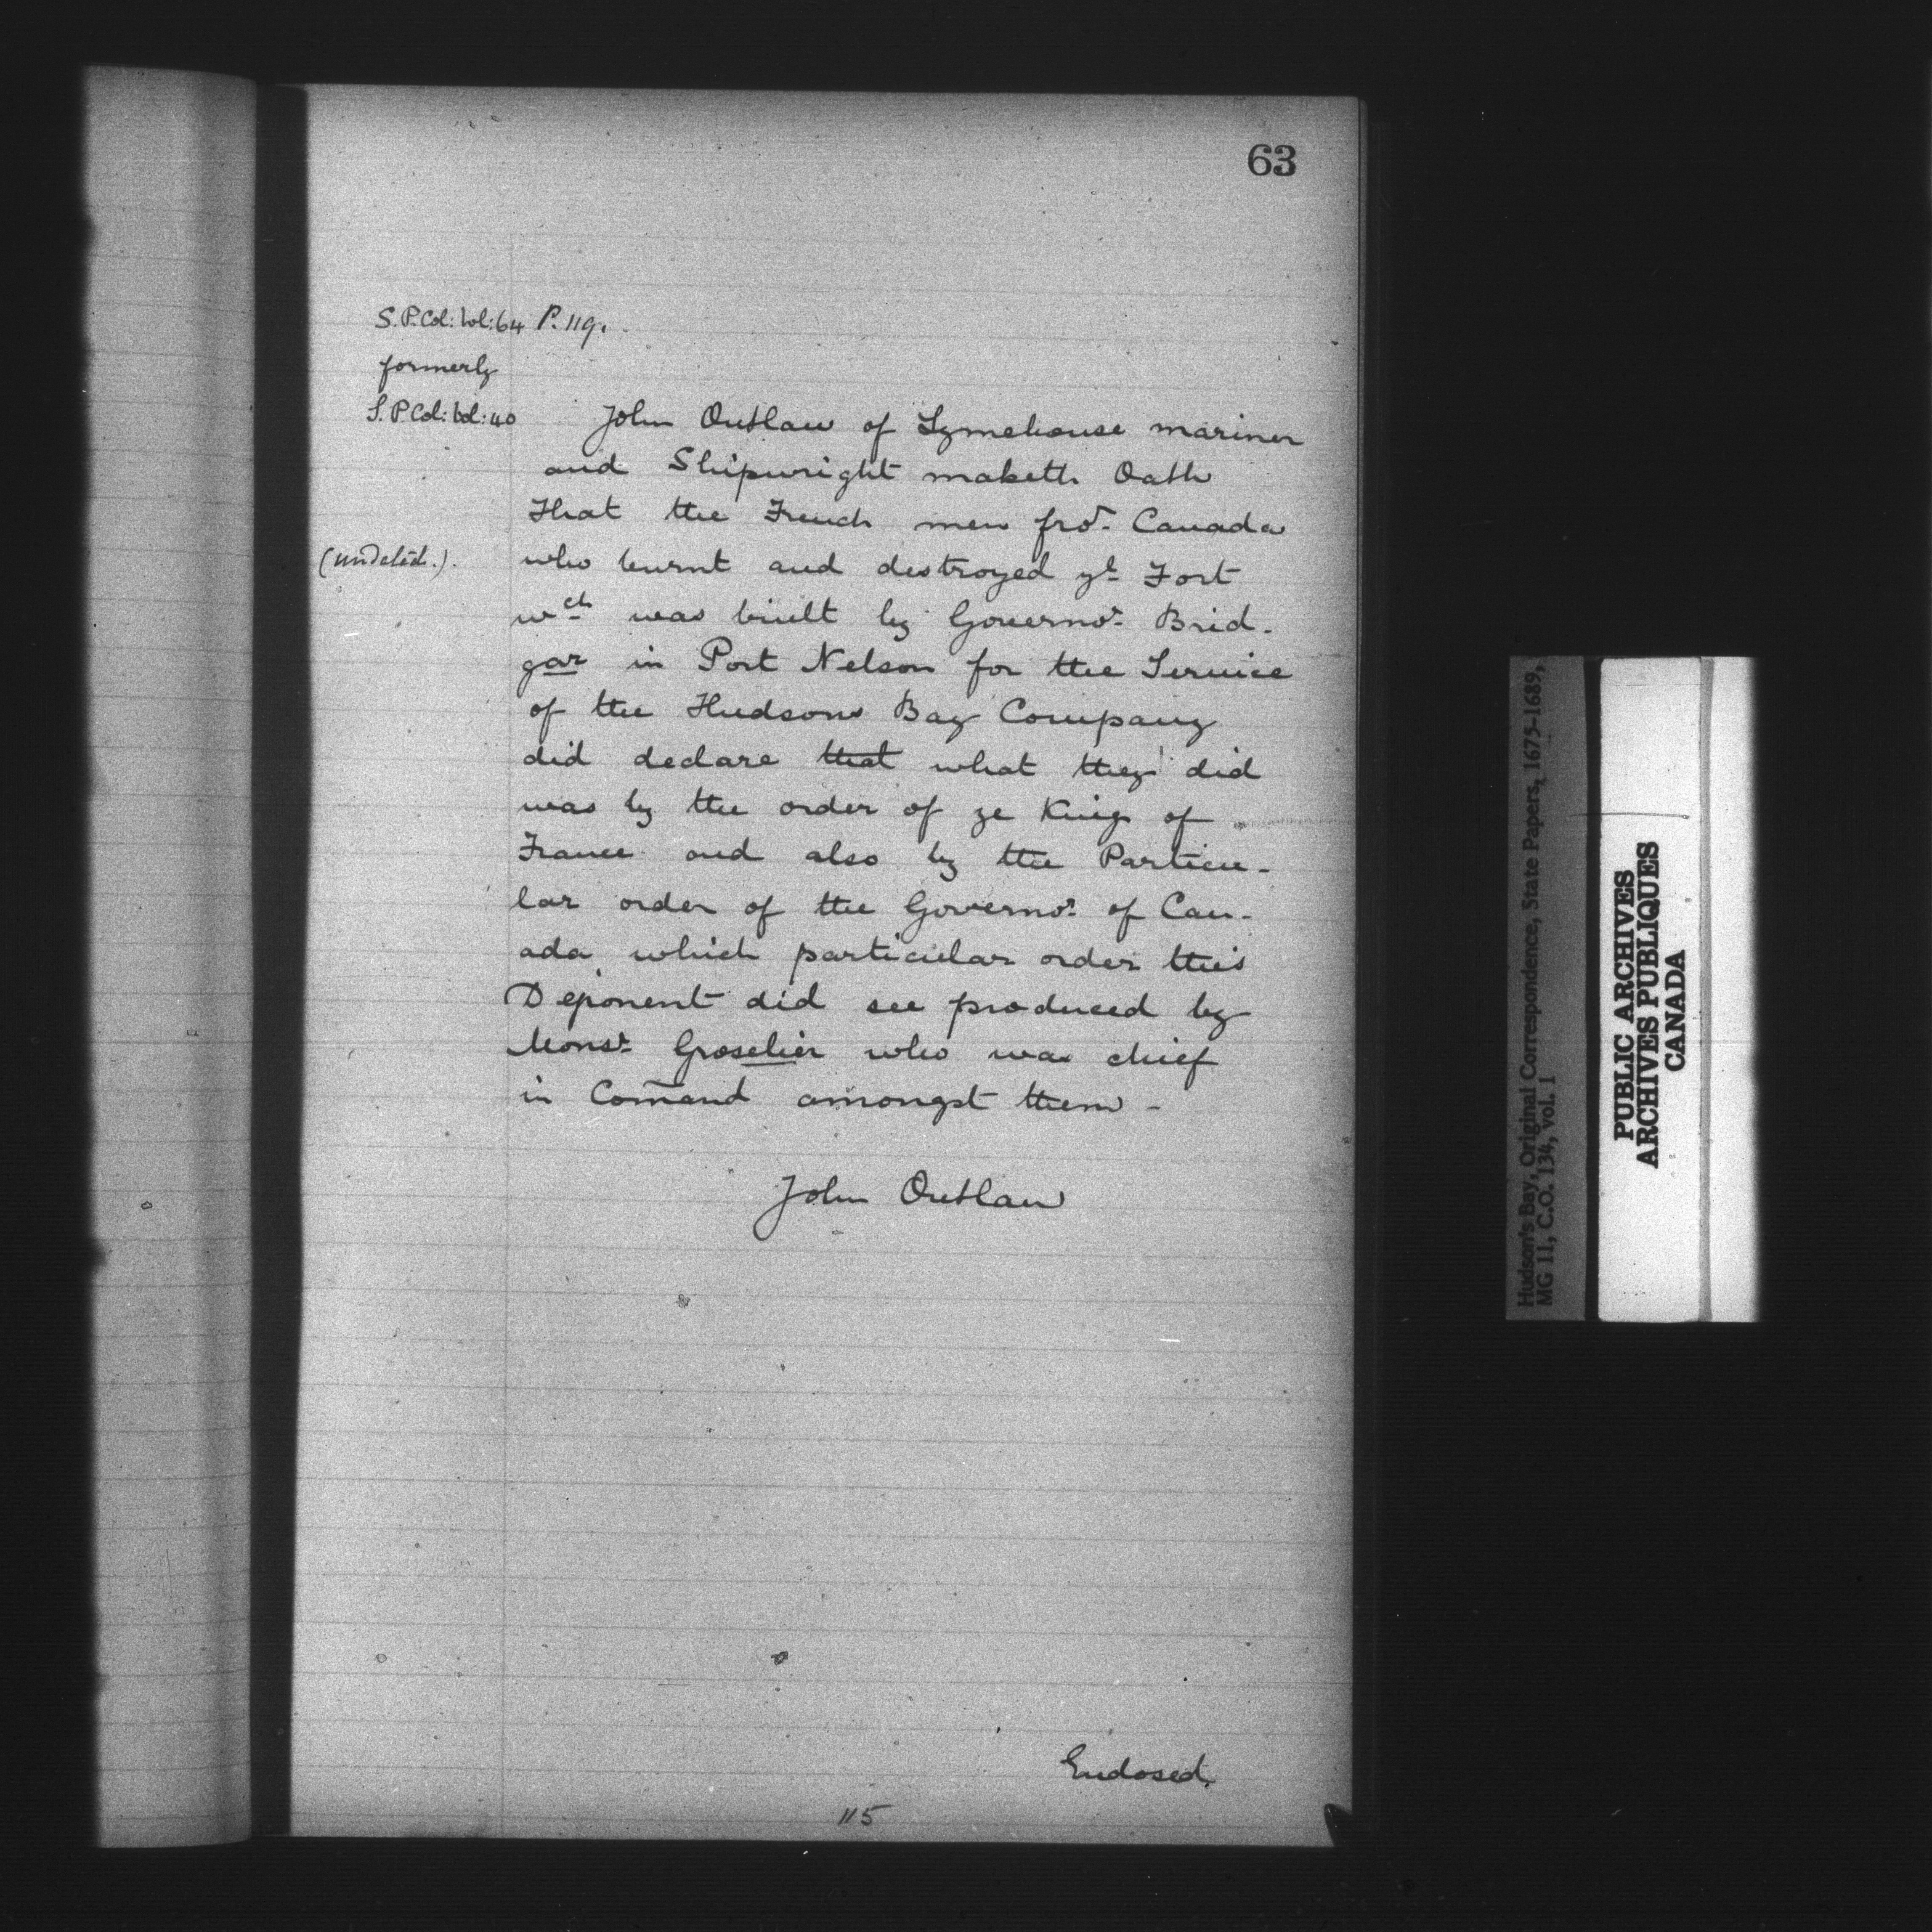 63
S.P.Col: Vol: 64 P. 119.
formerly
S.P.Col: Vol: 40
John Outlaw of Lymehouse mariner
and Shipwright maketh Oath
That the French men fro^m Canada
(undated.).
who burnt and destroyed y^t Fort
w^ch was built by Governo^r Brid-
gar in Port Nelson for the Service
of the Hudsons Bay Company
did declare that what they did
was by the order of ye King of
France and also by the Particu-
lar order of the Governo^r of Can-
ada, which particular order this
Deponent did see produced by
Mons^r Groselier who was chief
in Com̄and amongst them -
John Outlaw
Endosed.
115
Hudson's Bay, Original Correspondence, State Papers, 1675-1689,
MG 11, C.O. 134, vol. 1
PUBLIC ARCHIVES
ARCHIVES PUBLIQUES
CANADA